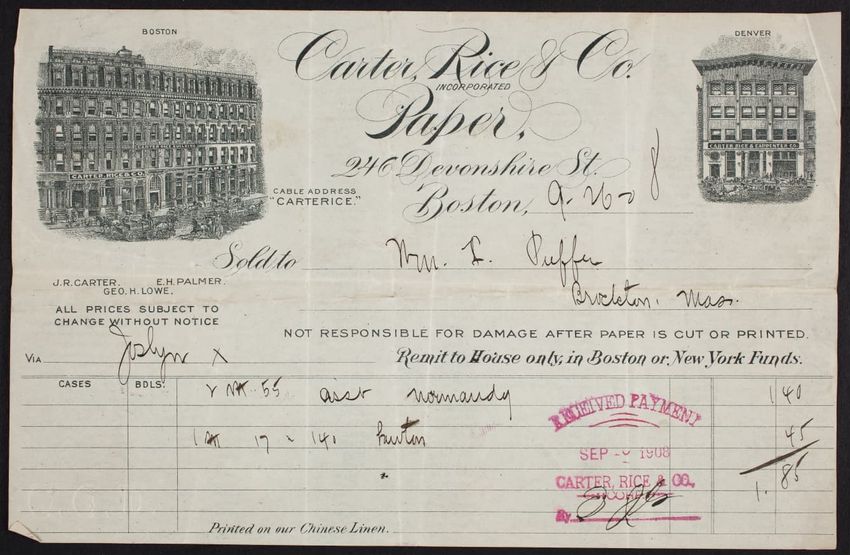 BOSTON
DENVER
Carter, Rice & Co.
INCORPORATED
Paper,
246 Devonshire St.
CARTER, RICE & CO.
CARTER RICE & CARPENTER CO.
CABLE ADDRESS
"CARTERICE."
Boston, 9-26-08
Sold to Wm. L. Puffer
Brockton, Mass.
J.R. CARTER. E.H. PALMER.
GEO. H. LOWE.
ALL PRICES SUBJECT TO
CHANGE WITHOUT NOTICE
NOT RESPONSIBLE FOR DAMAGE AFTER PAPER IS CUT OR PRINTED.
VIA Joslyn X
Remit to House only, in Boston or New York Funds.
CASES BDLS:
55 asst normandy 1 40
17 141 45
1.85
RECEIVED PAYMENT
SEP 1908
CARTER, RICE & CO.,
INCORP
By
Printed on our Chinese Linen.